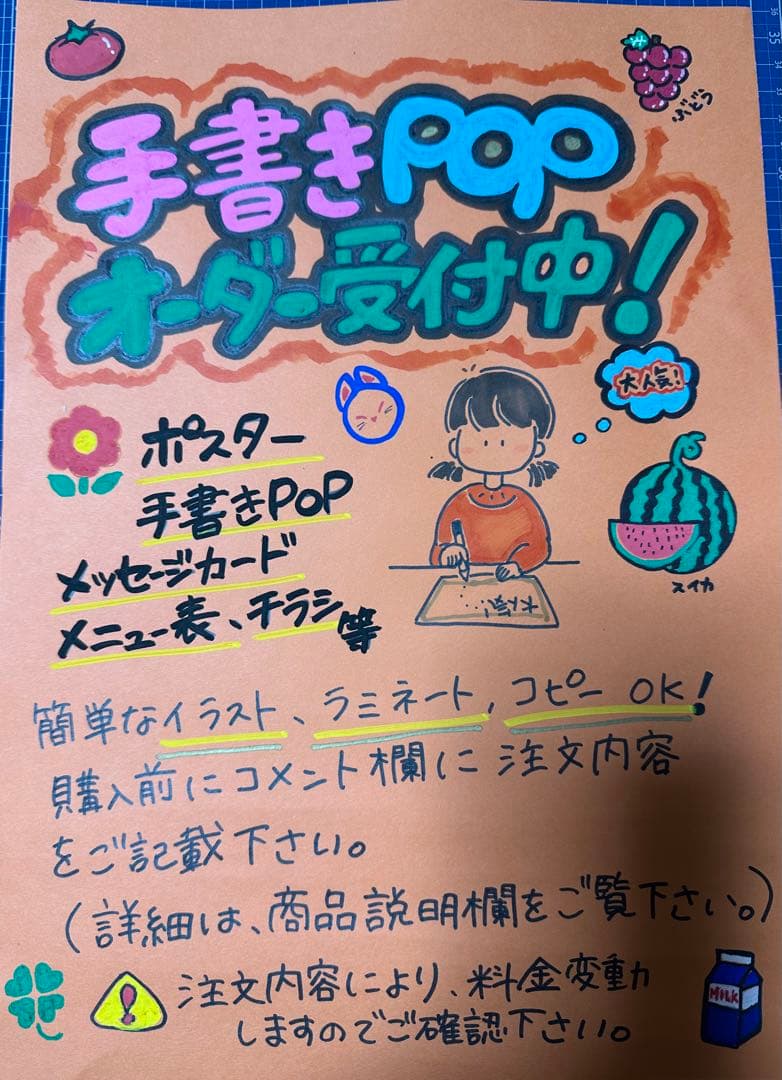 ぶどう
手書きPOP
オーダー受付中!
大人気!
ポスター
手書きPOP
メッセージカード
メニュー表、チラシ等
大人気!
スイカ
簡単なイラスト、ラミネート,コピーOK!
購入前にコメント欄に注文内容
をご記載下さい。
(詳細は、商品説明欄をご覧下さい。)
! 注文内容により、料金変動
しますのでご確認下さい。
MILK